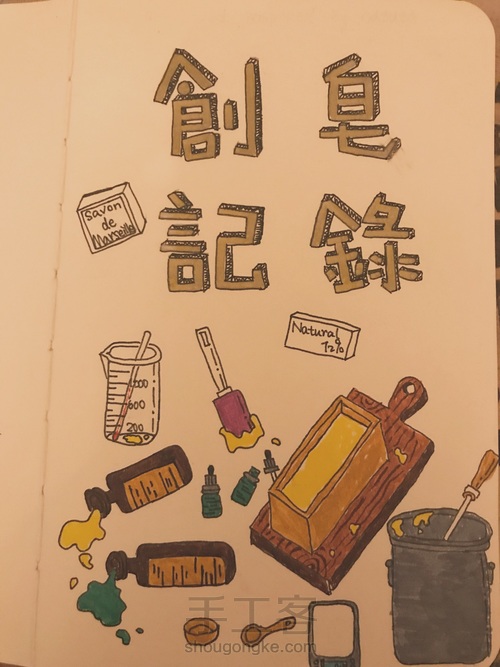 創皂
記錄
Savon
de
Marseille
Natural
72%
1000
600
200
手工客
shougongke.com